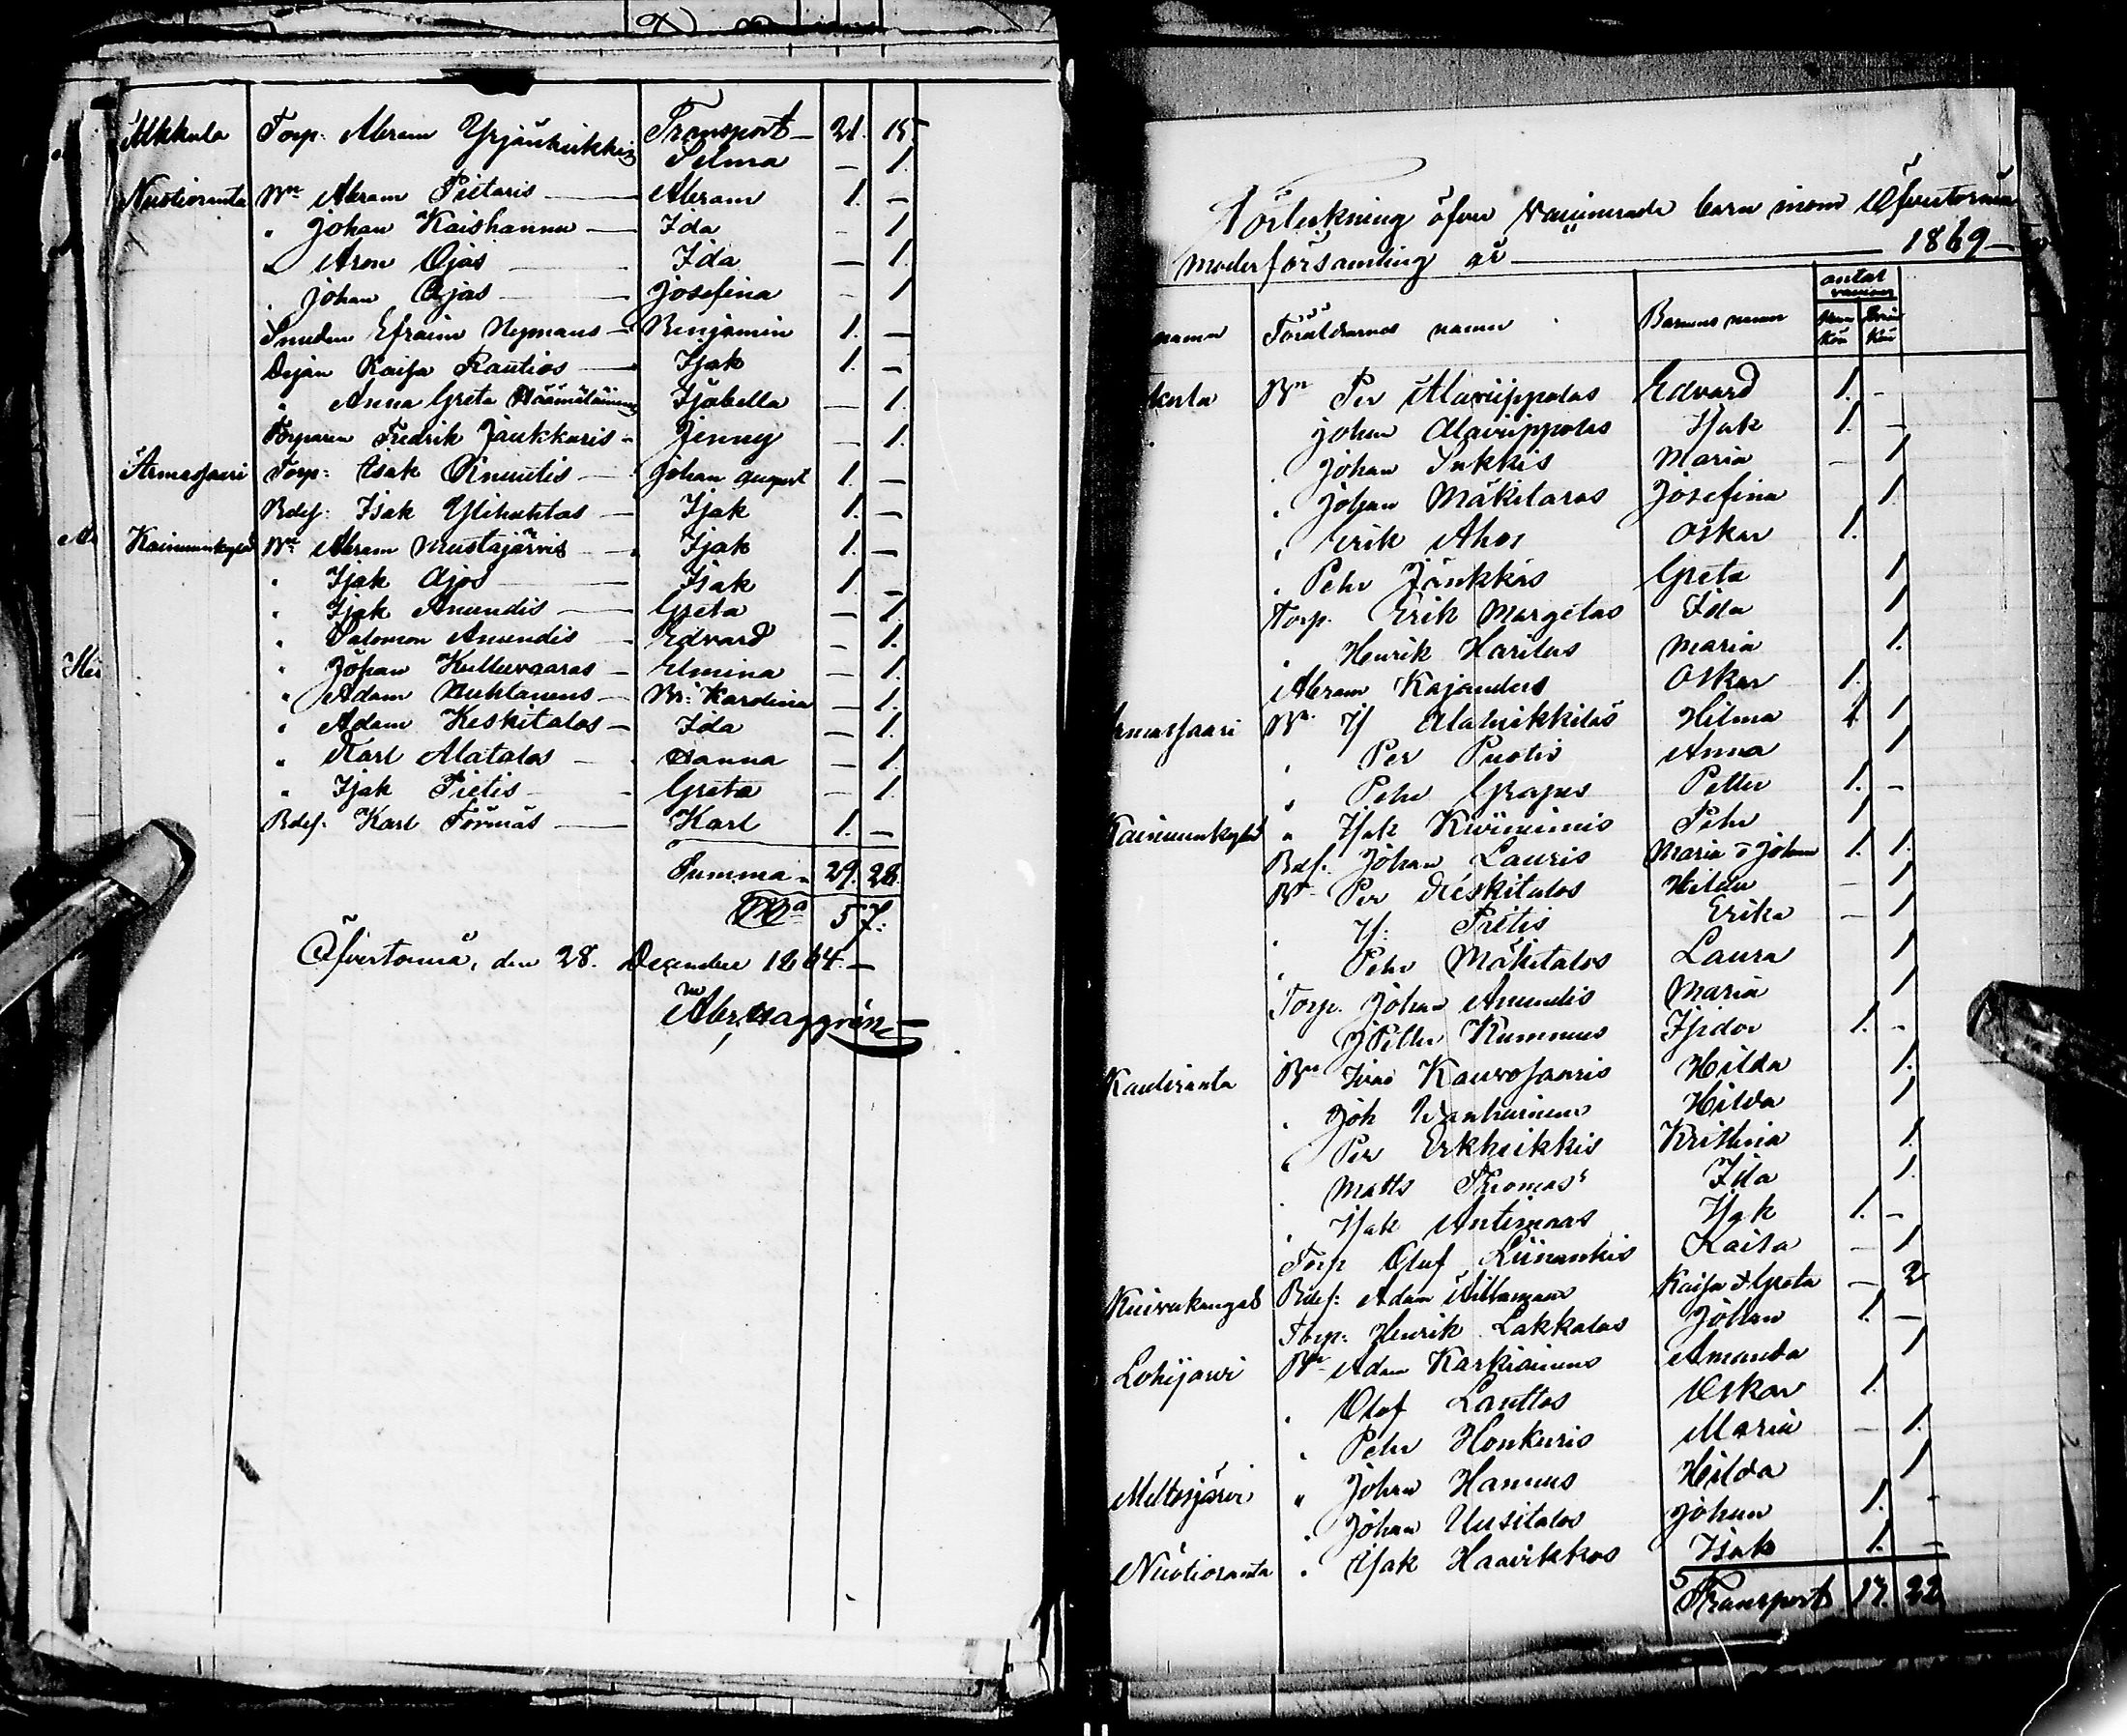 Transport — 21. 15.
Alkkula Torp. Abram Yrjänheikkis Selma — 1.
Nuotioranta Bn Abram Pietaris — Abram 1. —
" Johan Kaishannu — Ida — 1
" Aron Ojas — Ida — 1.
" Johan Ojas — Josefina — 1
Smeden Efraim Nymans — Benjamin 1. —
Dejan Kaisa Rautios — Isak 1. —
" Anna Greta Isabella — 1.
Torparen Fredrik Jänkkäris — Jenny — 1.
Armassaari Torp: Isak — Johan August 1. —
Bdes: Isak Ylihuhtas — Isak 1. —
Kainuunkylä Bn Abram Mustajärvis — Isak 1. —
" Isak Ajos — Isak 1 —
" Isak Anundis — Greta — 1.
" Salomon Anundis — Edvard — 1.
" Johan Kulluvaaras — Elmina — 1.
" Adam — Br: Karolina — 1.
" Adam Keskitalos — Ida — 1.
" Karl Alatalos — Hanna — 1.
" Isak Pietis — Greta — 1
Bdes. Karl Törmäs — Karl 1. —
Summa — 29. 28.
57.
Öfvertorneå, den 28. December 1864. —
Abr. Haggrén
Förteckning öfver vaccinerade barn inom Öfvertorneå
moderförsamling år — 1869 —
antal
namn Föräldrarnes namn Barnens namn
kön kön
Bn Per Alaviippolas Edvard 1. —
Johan Alaviippolas Isak 1. —
" Johan Sukkis Maria — 1
" Johan Mäkitaros Josefina 1.
" Erik Ahos Oskar 1.
" Pehr Jänkkäs Greta 1
Torp. Erik Margetas Ida 1
" Henrik Harilas Maria 1.
Abram Kajanders Oskar 1.
Bn Is Alaheikkiläs Hilma 1
" Per Puotis Anna 1
" Pehr Grapes Petter 1. —
Kainuunkylä " Isak Pehr 1
Bdes. Johan Lauris Maria o Johan 1. 1.
Bn Per Keskitalos Hilda — 1
" Is: Pietis Erika — 1
" Pehr Mäkitalos Laura 1
Torp. Johan Anundis Maria 1
" Petter Kummus Isidor 1. —
Kauliranta Bn Kauvosaaris Hilda 1.
" Joh Vanhainens Hilda 1
" Per Erkheikkis Kristina 1.
" Matts Thomas Ida 1.
" Isak Antinaas Isak 1. —
Torp Olof Liinankis Kaisa — 1
Kuivakangas Bdes: Adam Kaisa & Greta — 2
Torp: Henrik Lakkalas Johan 1. —
Lohijärvi Bn Adam Karkiainens Amanda 1
" Olof Lauttos Oskar 1.
" Pehr Honkuris Maria — 1.
Meltosjärvi " Johan Hannus Hilda 1
" Johan Uusitalos Johan 1. —
Nuotioranta " Isak Haavikkos Isak 1. —
Transport 17. 22